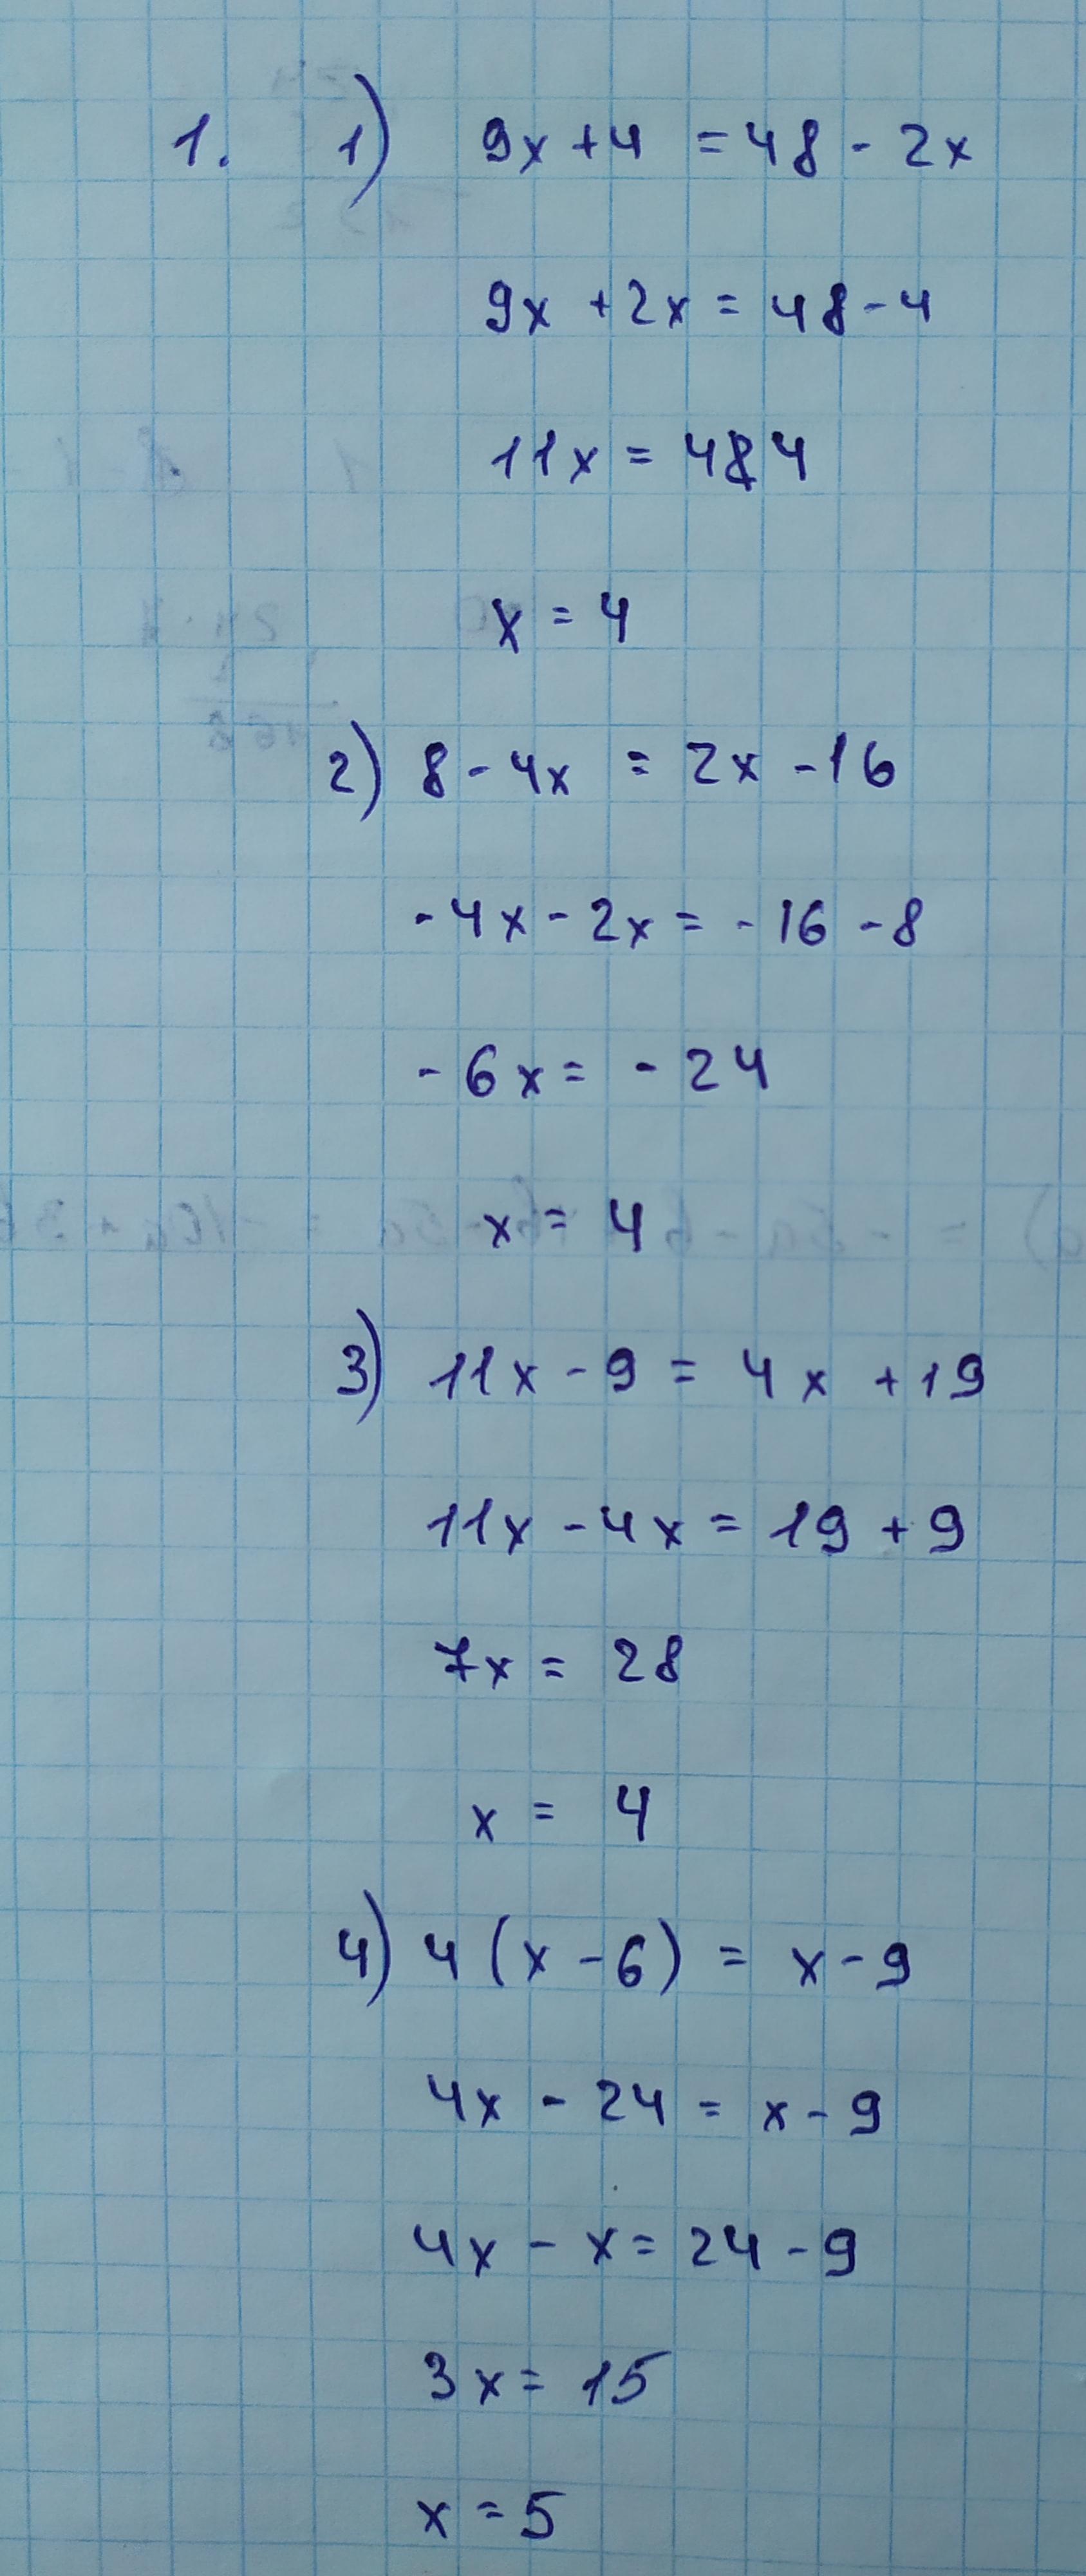 1. 1) 9x + 4 = 48 - 2x
9x + 2x = 48 - 4
11x = 44
x = 4
2) 8 - 4x = 2x - 16
- 4x - 2x = - 16 - 8
- 6x = - 24
x = 4
3) 11x - 9 = 4x + 19
11x - 4x = 19 + 9
7x = 28
x = 4
4) 4 (x - 6) = x - 9
4x - 24 = x - 9
4x - x = 24 - 9
3x = 15
x = 5